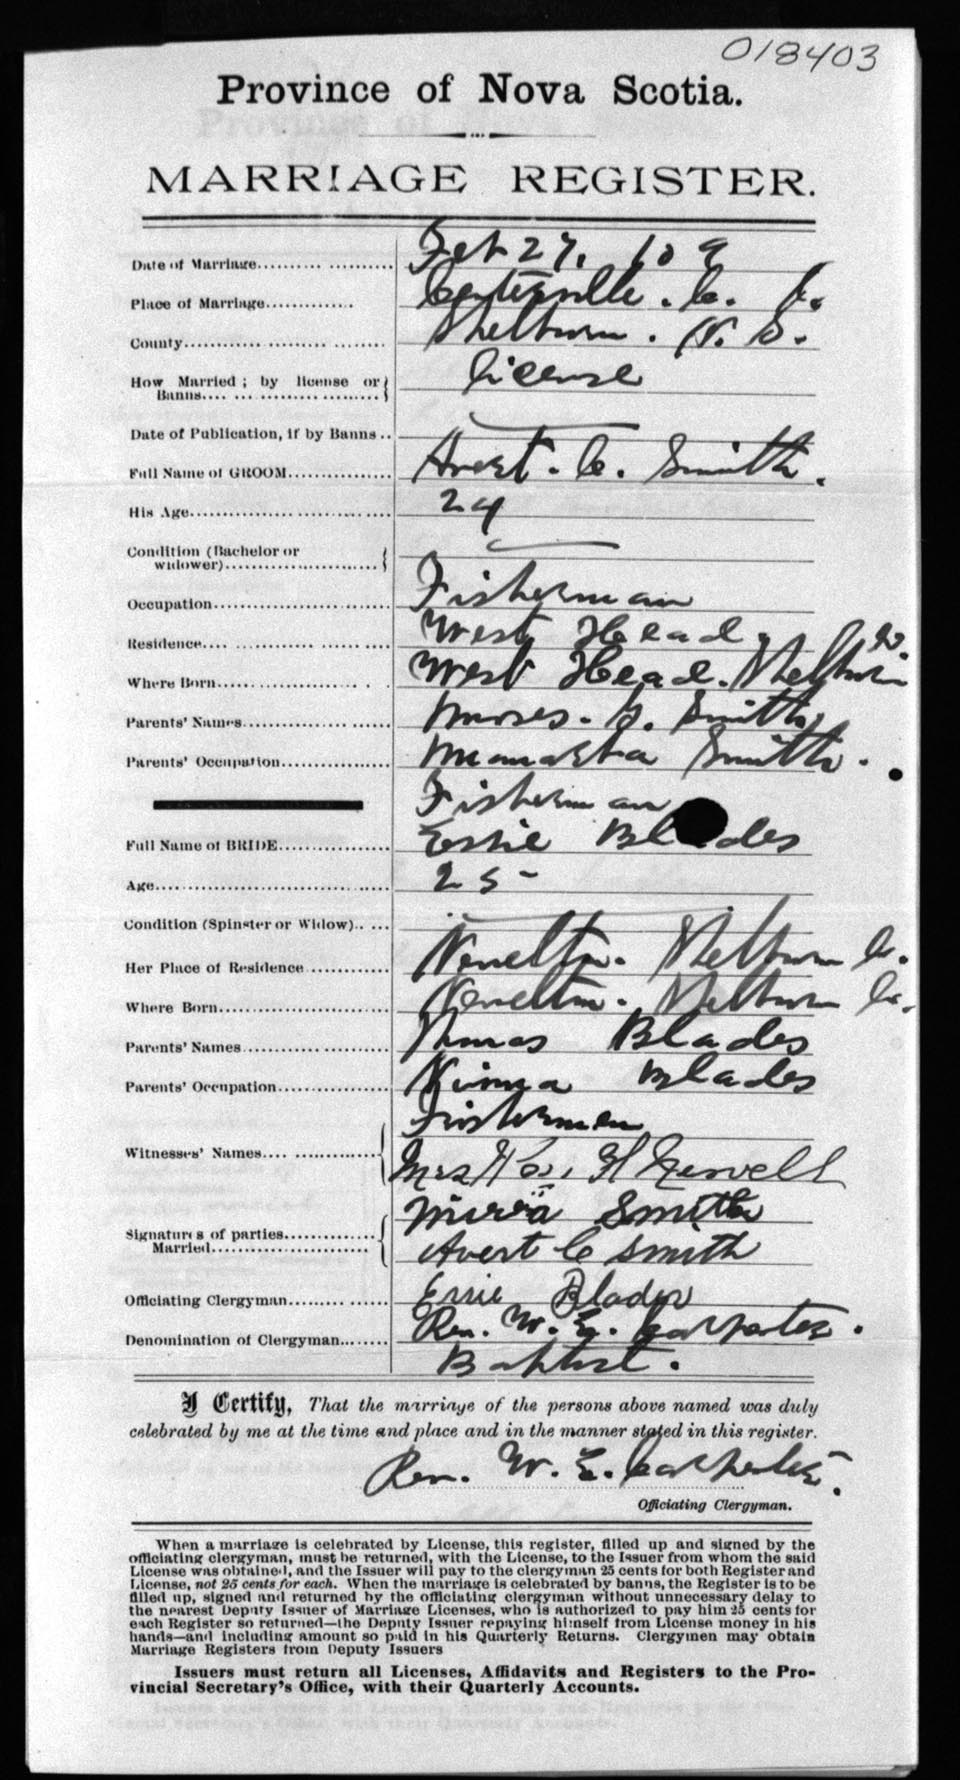 018403
Province of Nova Scotia.
MARRIAGE REGISTER.
Date of Marriage Feb 27. 10 9
Place of Marriage Centerville. C. I.
County Shelburn. N. S.
How Married; by license or Banns License
Date of Publication, if by Banns
Full Name of GROOM Avert. C. Smith.
His Age 24
Condition (Bachelor or widower)
Occupation Fisherman
Residence West Head
Where Born West Head. Shelburn Co.
Parents' Names Moses. Smith
Parents' Occupation Smith.
Fisherman
Full Name of BRIDE Essie Blades
Age 25
Condition (Spinster or Widow)
Her Place of Residence Newellton. Shelburn Co.
Where Born Newellton. Shelburn Co.
Parents' Names Thomas Blades
Parents' Occupation Blades
Fishermen
Witnesses' Names Mrs H Newell
Smith
Signatures of parties Married Avert C Smith
Essie Blades
Officiating Clergyman Rev. W. E. Carpenter.
Denomination of Clergyman Baptist.
I Certify, That the marriage of the persons above named was duly
celebrated by me at the time and place and in the manner stated in this register.
Rev. W. E. Carpenter.
Officiating Clergyman.
When a marriage is celebrated by License, this register, filled up and signed by the
officiating clergyman, must be returned, with the License, to the Issuer from whom the said
License was obtained, and the Issuer will pay to the clergyman 25 cents for both Register and
License, not 25 cents for each. When the marriage is celebrated by banns, the Register is to be
filled up, signed and returned by the officiating clergyman without unnecessary delay to
the nearest Deputy Issuer of Marriage Licenses, who is authorized to pay him 25 cents for
each Register so returned—the Deputy Issuer repaying himself from License money in his
hands—and including amount so paid in his Quarterly Returns. Clergymen may obtain
Marriage Registers from Deputy Issuers
Issuers must return all Licenses, Affidavits and Registers to the Pro-
vincial Secretary's Office, with their Quarterly Accounts.